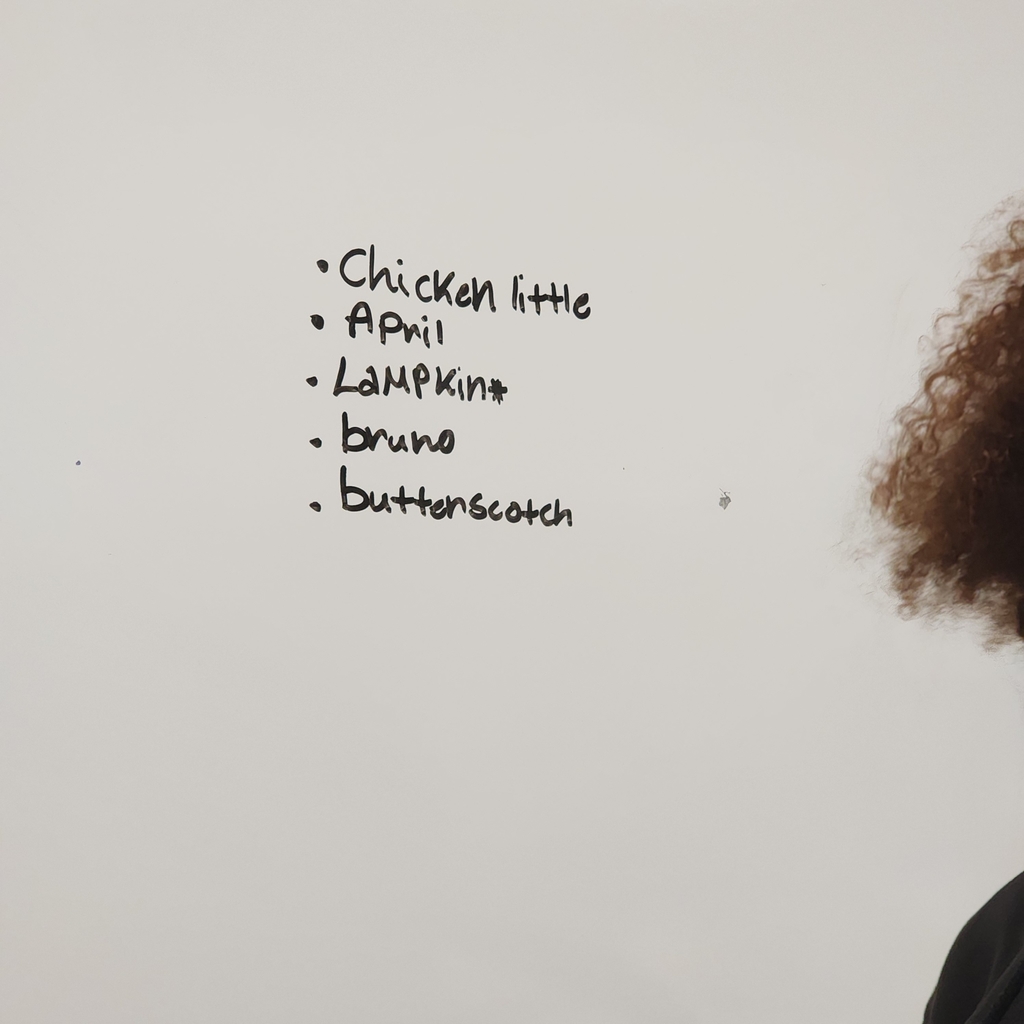 • Chicken little
• April
• LaMPKin*
• bruno
• butterscotch